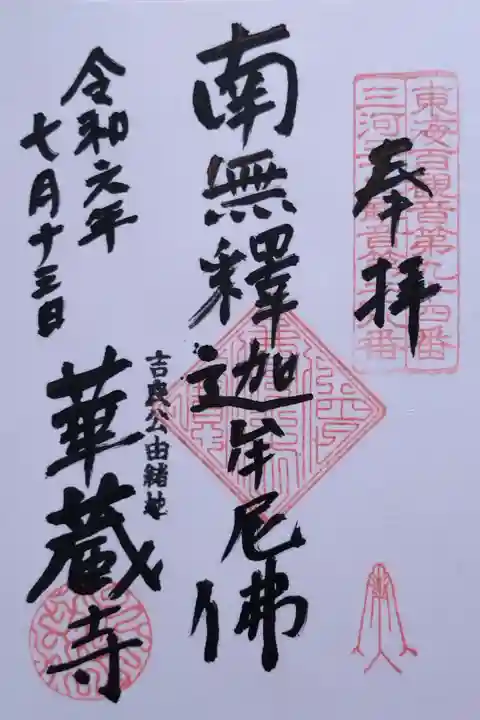 東海百観音第九十四番
奉拝
南無釋迦牟尼佛
令和元年
七月十三日
吉良公由緒地
華蔵寺